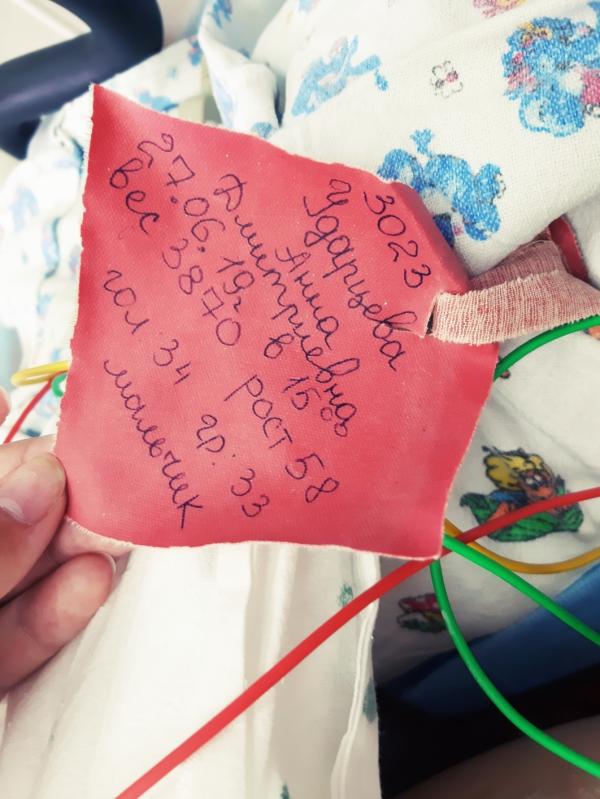 3023
Ударцева
Анна
Дмитриевна
27.06.19г в 15⁰⁰
вес 3870 рост 58
гол 34 гр. 33
мальчик